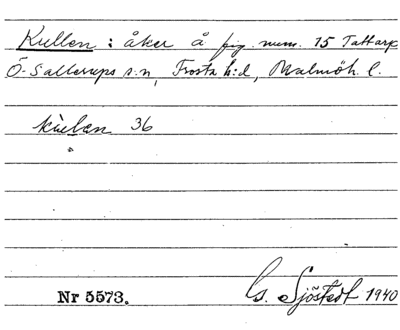 Kullen : åker å fig. num. 15 Tattarp
Ö. Sallerups s:n, Frosta h:d, Malmöh. l.
kùlæn 36
Nr 5573. G. Sjöstedt 1940